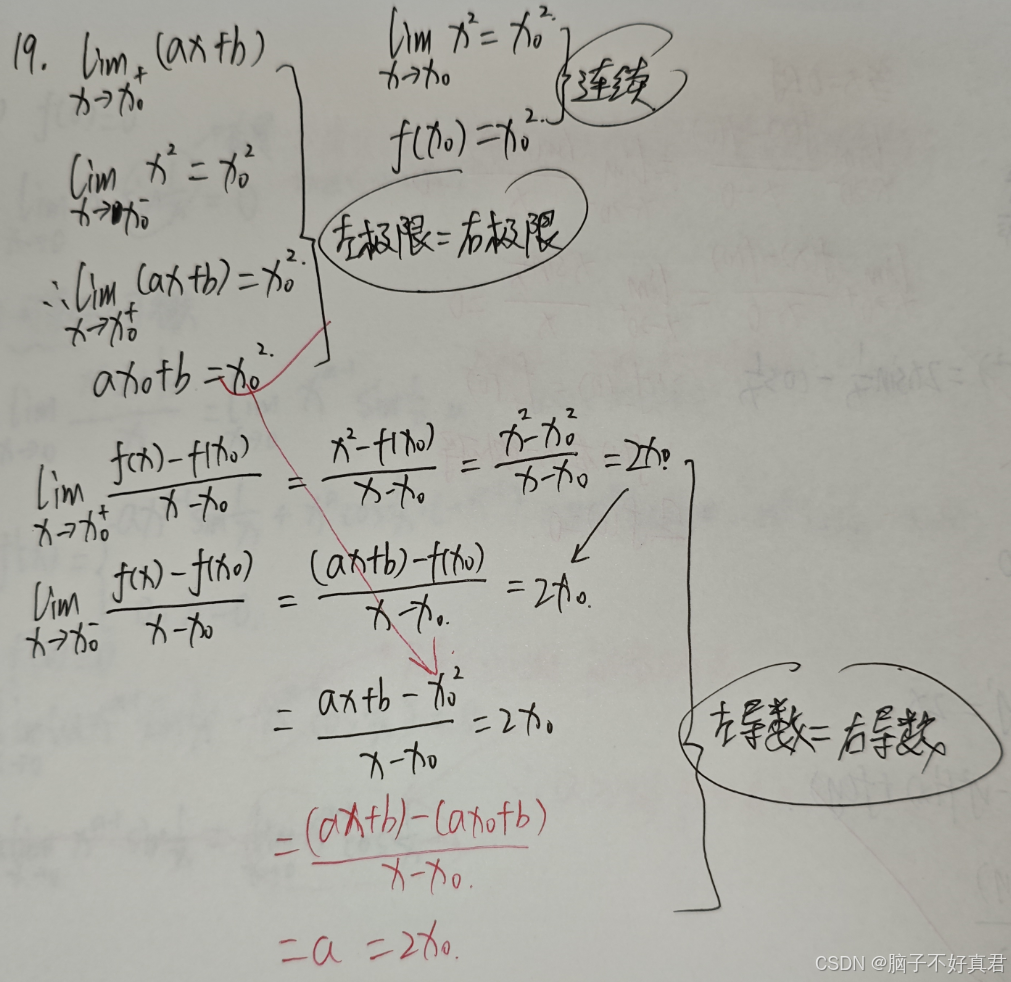 19. lim x→x₀⁺ (ax+b)
lim x→x₀ x² = x₀²
f(x₀) = x₀²
连续
lim x→x₀⁻ x² = x₀²
左极限=右极限
∴ lim x→x₀⁺ (ax+b) = x₀²
ax₀+b = x₀²
lim x→x₀⁺ (f(x)-f(x₀))/(x-x₀) = (x²-f(x₀))/(x-x₀) = (x²-x₀²)/(x-x₀) = 2x₀
lim x→x₀⁻ (f(x)-f(x₀))/(x-x₀) = ((ax+b)-f(x₀))/(x-x₀) = 2x₀.
= (ax+b-x₀²)/(x-x₀) = 2x₀
左导数=右导数
= ((ax+b)-(ax₀+b))/(x-x₀)
= a = 2x₀.
CSDN @脑子不好真君